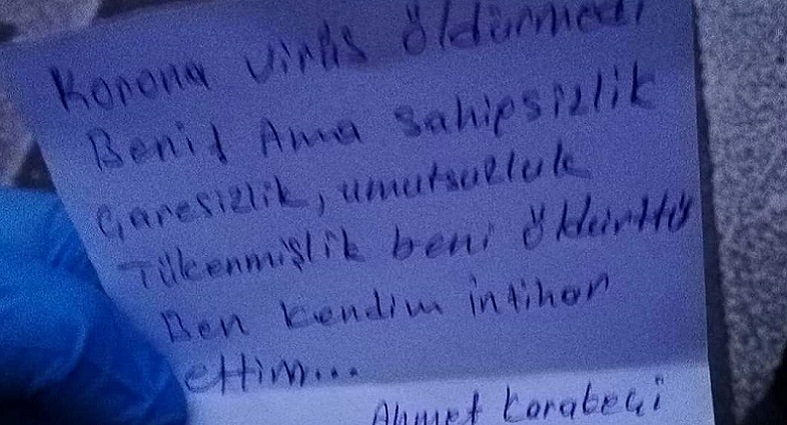 Korona virüs öldürmedi
Beni! Ama sahipsizlik
Çaresizlik, umutsuzluk
Tükenmişlik beni öldürttü
Ben kendim intihar
ettim...
Ahmet Karabeçi